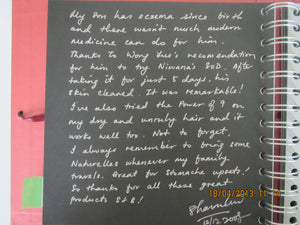 My son has eczema since birth
and there wasn't much modern
medicine can do for him.
Thanks to Wory Hue's recomendation
for him to try Nirvana's SOD. After
taking it for just 5 days, his
skin cleared. It was remarkable!
I've also tried the Power of 9 on
my dry and unruly hair and it
works well too. Not to forget,
I always remember to bring some
Naturelles whenever my family
travels. Great for stomache upsets!
So thanks for all these great
products S&B!
12/12.2009
18/04/2013 11